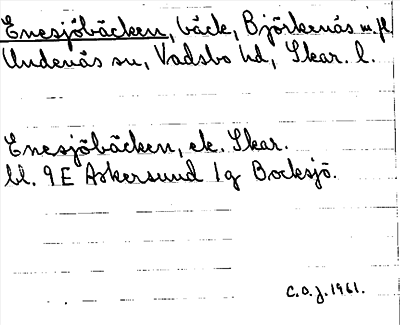 Enesjöbäcken, bäck, Björkenäs m.fl.
Undenäs sn, Vadsbo hd, Skar. l.
Enesjöbäcken, ek. Skar.
bl. 9 E Askersund 1g Bocksjö.
C.O.J. 1961.